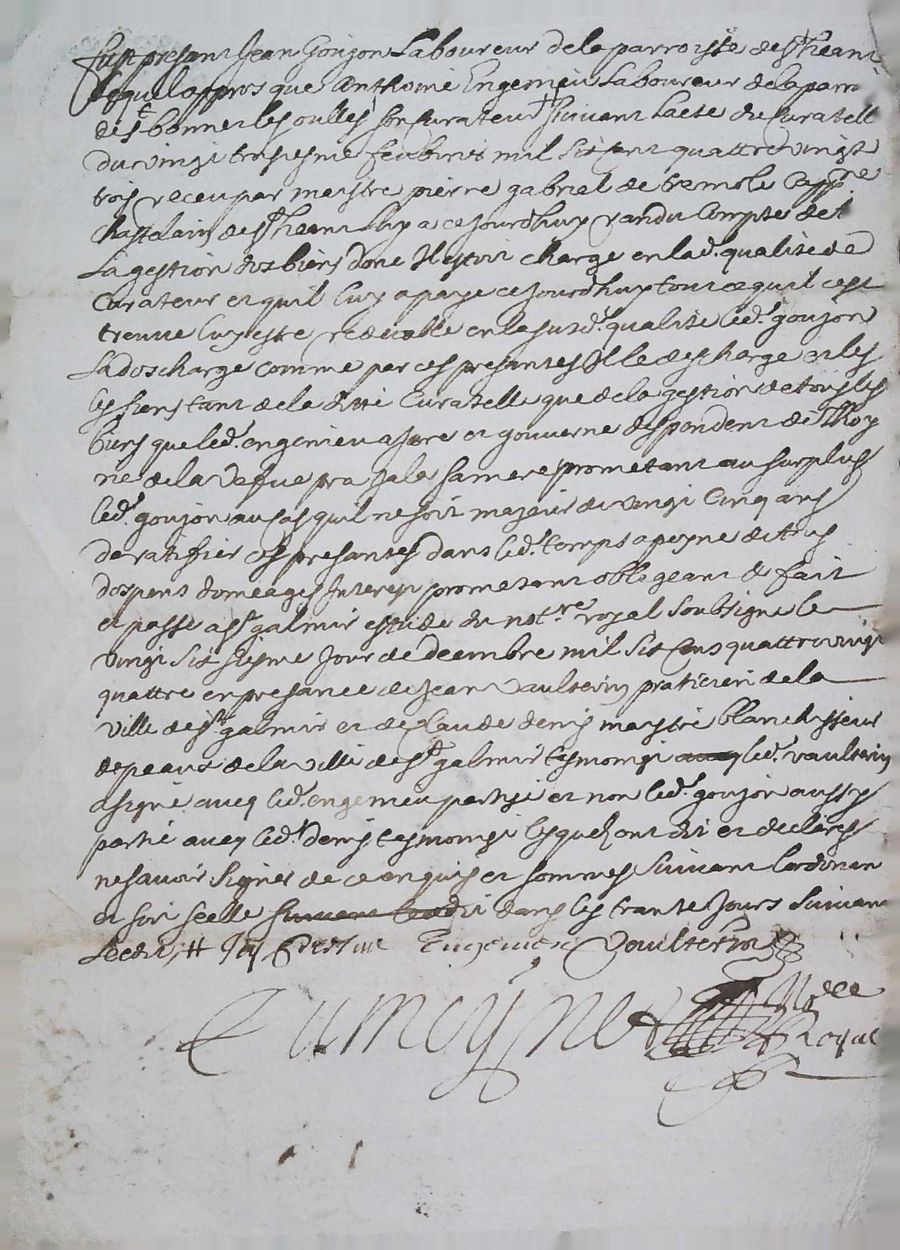 fust presant Jean Goujon Laboureur de la parroisse de st heant
lequel appres que Anthoine Engemieu Laboureur de la parr
de st bonnet les oulles son curateur suivant lacte de curatell
du vingt troisiesme febvrier mil six cent quattre vingt
trois receu par maistre pierre gabriel de tremole cappne
chastelain de st heant luy a ce jourdhuy randu compte de
La gestion des biens dont Il estoit charge en lad. qualite de
curateur et quil luy a paye ce jourdhuy tout ce quil cest
treuve luy estre redevable en la susd. qualite led. goujon
La descharge comme par ces presantes Il le descharge et les
les siens tant de la ditte Curatelle que de la gestion de tous les
biens que led. engemieu a fere et gouverne despendent de
ne de la vefve sa mere prometant au surplus
led. goujon au cas quil ne soit majeur de vingt cinq ans
de ratifier ces presantes dans led. temps a peyne de tous
despens domeages Interest prometant obligeant &c fait
et passé a st galmier estude du notre royal soubsigne le
vingt sixiesme jour de decembre mil six cens quattre vingt
quattre en presance de Jean Vaulterin praticien de la
ville de st galmier et de Claude denis maistre blanchisseur
de peaux de la ville de st galmier tesmoingt led. vaulterin
a signé avecq led. engemieu partye et non led. goujon aussy
partie avecq led. denis tesmoingt lesquels ont dit et declarés
ne savoir signer de ce enquis et sommes suivant lordonan
et soit scelle dans les trante jours suivant
Ledit
Engemieu Vaulterin
Dumoyne No.re
Royal